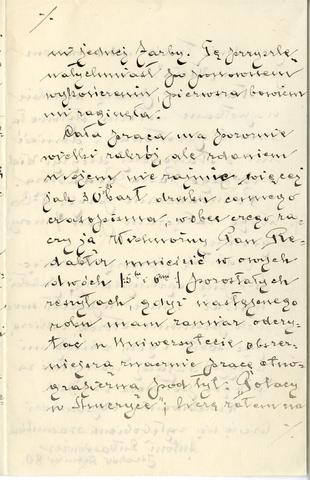 w jednej farby. Tę przyszlę
natychmiast po ponownem
wykończeniu pierwsza bowiem
mi zaginęła.
Cała praca ma pozornie
wielki zakrój, ale zdaniem
mojem nie zajmie więcej
jak 30 kart druku cennego
czasopisma, wobec czego ra-
czy ją Wielmożny Pan Re-
daktor umieścić w owych
dwóch (5tm i 6tm) pozostałych
zeszytach, gdyż następnego
roku mam zamiar odczy-
tać w Uniwersytecie obszer-
niejszą znacznie pracę etno-
graficzną pod tyt: "Polacy
w Ameryce"; biorę zatem na